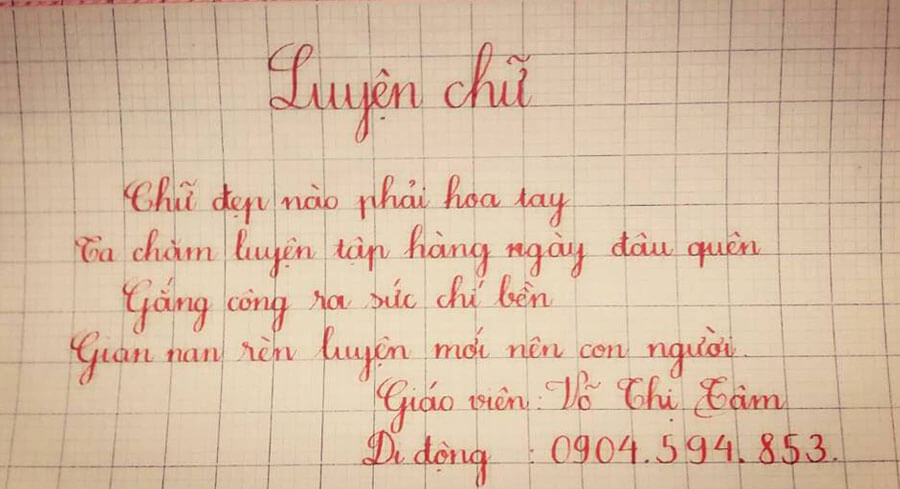 Luyện chữ
Chữ đẹp nào phải hoa tay
Ta chăm luyện tập hàng ngày đâu quên
Gắng công ra sức chí bền
Gian nan rèn luyện mới nên con người.
Giáo viên: Võ Thị Tâm
Di động : 0904.594.853.